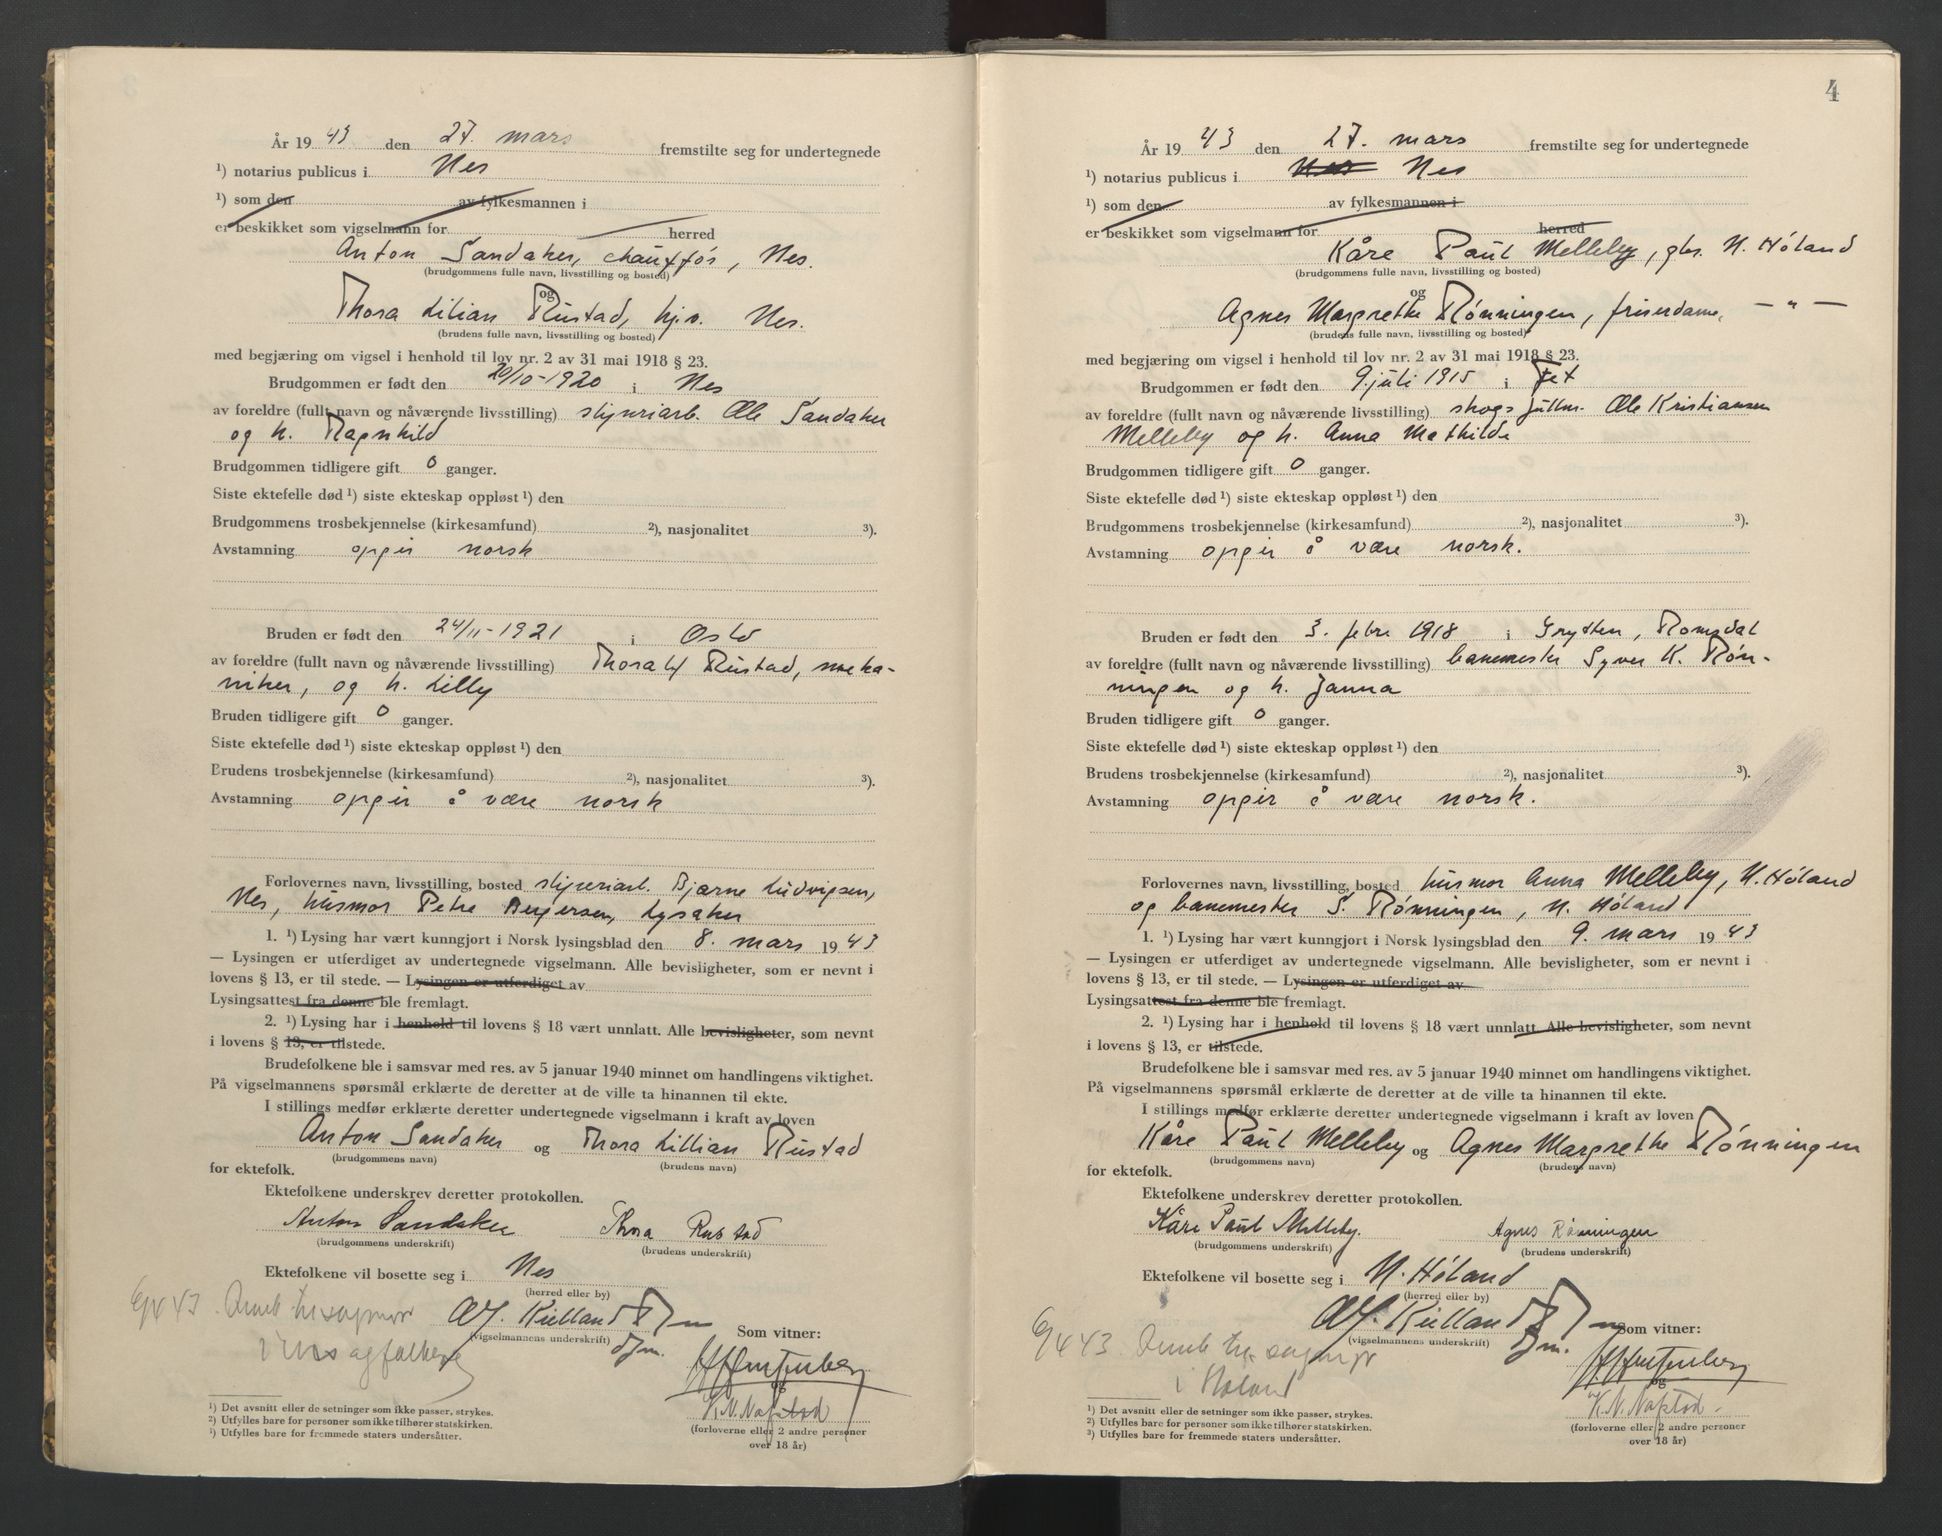 År 19 43 den 27. mars fremstilte seg for undertegnede
¹) notarius publicus i Nes
¹) som den av fylkesmannen i
er beskikket som vigselmann for herred
Anton Sandaker, chauffør, Nes.
(brudgommens fulle navn, livsstilling og bosted)
og
Thora Lilian Rustad, hj.v. Nes.
(brudens fulle navn, livsstilling og bosted)
med begjæring om vigsel i henhold til lov nr. 2 av 31 mai 1918 § 23.
Brudgommen er født den 20/10-1920 i Nes
av foreldre (fullt navn og nåværende livsstilling) sliperiarb. Ole Sandaker
og h. Ragnhild
Brudgommen tidligere gift 0 ganger.
Siste ektefelle død ¹) siste ekteskap oppløst ¹) den
Brudgommens trosbekjennelse (kirkesamfund) ²), nasjonalitet ³).
Avstamning opgir norsk
Bruden er født den 24/11-1921 i Oslo
av foreldre (fullt navn og nåværende livsstilling) Thoralf Rustad, meka-
niker, og h. Lilly
Bruden tidligere gift 0 ganger.
Siste ektefelle død ¹) siste ekteskap oppløst ¹) den
Brudens trosbekjennelse (kirkesamfund) ²), nasjonalitet ³).
Avstamning opgir å være norsk
Forlovernes navn, livsstilling, bosted sliperiarb. Bjarne Ludvigsen,
Nes, husmor Petra Bergersen, Lysaker
1. ¹) Lysing har vært kunngjort i Norsk lysingsblad den 8. mars 19 43
— Lysingen er utferdiget av undertegnede vigselmann. Alle bevisligheter, som er nevnt i
lovens § 13, er til stede. — Lysingen er utferdiget av
Lysingsattest fra denne ble fremlagt.
2. ¹) Lysing har i henhold til lovens § 18 vært unnlatt. Alle bevisligheter, som nevnt
i lovens § 13, er tilstede.
Brudefolkene ble i samsvar med res. av 5 januar 1940 minnet om handlingens viktighet.
På vigselmannens spørsmål erklærte de deretter at de ville ta hinannen til ekte.
I stillings medfør erklærte deretter undertegnede vigselmann i kraft av loven
Anton Sandaker og Thora Lillian Rustad
(brudgommens navn) (brudens navn)
for ektefolk.
Ektefolkene underskrev deretter protokollen.
Anton Sandaker Thora Rustad
(brudgommens underskrift) (brudens underskrift)
Ektefolkene vil bosette seg i Nes
(herred eller by)
Alf. Kielland
(vigselmannens underskrift)
Som vitner:
og
K. N. Nafstad
(forloverne eller 2 andre personer
over 18 år)
¹) Det avsnitt eller de setninger som ikke passer, strykes.
²) Utfylles bare for personer som ikke tilhører statskirken.
¹) Utfylles bare for fremmede staters undersåtter.
4
År 19 43 den 27. mars fremstilte seg for undertegnede
¹) notarius publicus i Nes Nes
¹) som den av fylkesmannen i
er beskikket som vigselmann for herred
Kåre Paul Melleby, gbr. N. Høland
(brudgommens fulle navn, livsstilling og bosted)
og
Agnes Margrethe Rønningen, friserdame, — " —
(brudens fulle navn, livsstilling og bosted)
med begjæring om vigsel i henhold til lov nr. 2 av 31 mai 1918 § 23.
Brudgommen er født den 9. juli 1915 i Fet
av foreldre (fullt navn og nåværende livsstilling) skogsfullm. Ole Kristiansen
Melleby og h. Anna Mathilde
Brudgommen tidligere gift 0 ganger.
Siste ektefelle død ¹) siste ekteskap oppløst ¹) den
Brudgommens trosbekjennelse (kirkesamfund) ²), nasjonalitet ³).
Avstamning opgir å være norsk.
Bruden er født den 3. febr 1918 i Grytten, Romsdal
av foreldre (fullt navn og nåværende livsstilling) banemester Syver K. Røn-
ningen og h. Janna
Bruden tidligere gift 0 ganger.
Siste ektefelle død ¹) siste ekteskap oppløst ¹) den
Brudens trosbekjennelse (kirkesamfund) ²), nasjonalitet ³).
Avstamning opgir å være norsk.
Forlovernes navn, livsstilling, bosted husmor Anna Melleby, N. Høland
og banemester S. Rønningen, N. Høland
1. ¹) Lysing har vært kunngjort i Norsk lysingsblad den 9. mars 19 43
— Lysingen er utferdiget av undertegnede vigselmann. Alle bevisligheter, som er nevnt i
lovens § 13, er til stede. — Lysingen er utferdiget av
Lysingsattest fra denne ble fremlagt.
2. ¹) Lysing har i henhold til lovens § 18 vært unnlatt. Alle bevisligheter, som nevnt
i lovens § 13, er tilstede.
Brudefolkene ble i samsvar med res. av 5 januar 1940 minnet om handlingens viktighet.
På vigselmannens spørsmål erklærte de deretter at de ville ta hinannen til ekte.
I stillings medfør erklærte deretter undertegnede vigselmann i kraft av loven
Kåre Paul Melleby og Agnes Margrethe Rønningen
(brudgommens navn) (brudens navn)
for ektefolk.
Ektefolkene underskrev deretter protokollen.
Kåre Paul Melleby. Agnes Rønningen
(brudgommens underskrift) (brudens underskrift)
Ektefolkene vil bosette seg i N. Høland
(herred eller by)
Alf. Kielland
(vigselmannens underskrift)
Som vitner:
i Høland
og
K. N. Nafstad.
(forloverne eller 2 andre personer
over 18 år)
¹) Det avsnitt eller de setninger som ikke passer, strykes.
²) Utfylles bare for personer som ikke tilhører statskirken.
³) Utfylles bare for fremmede staters undersåtter.